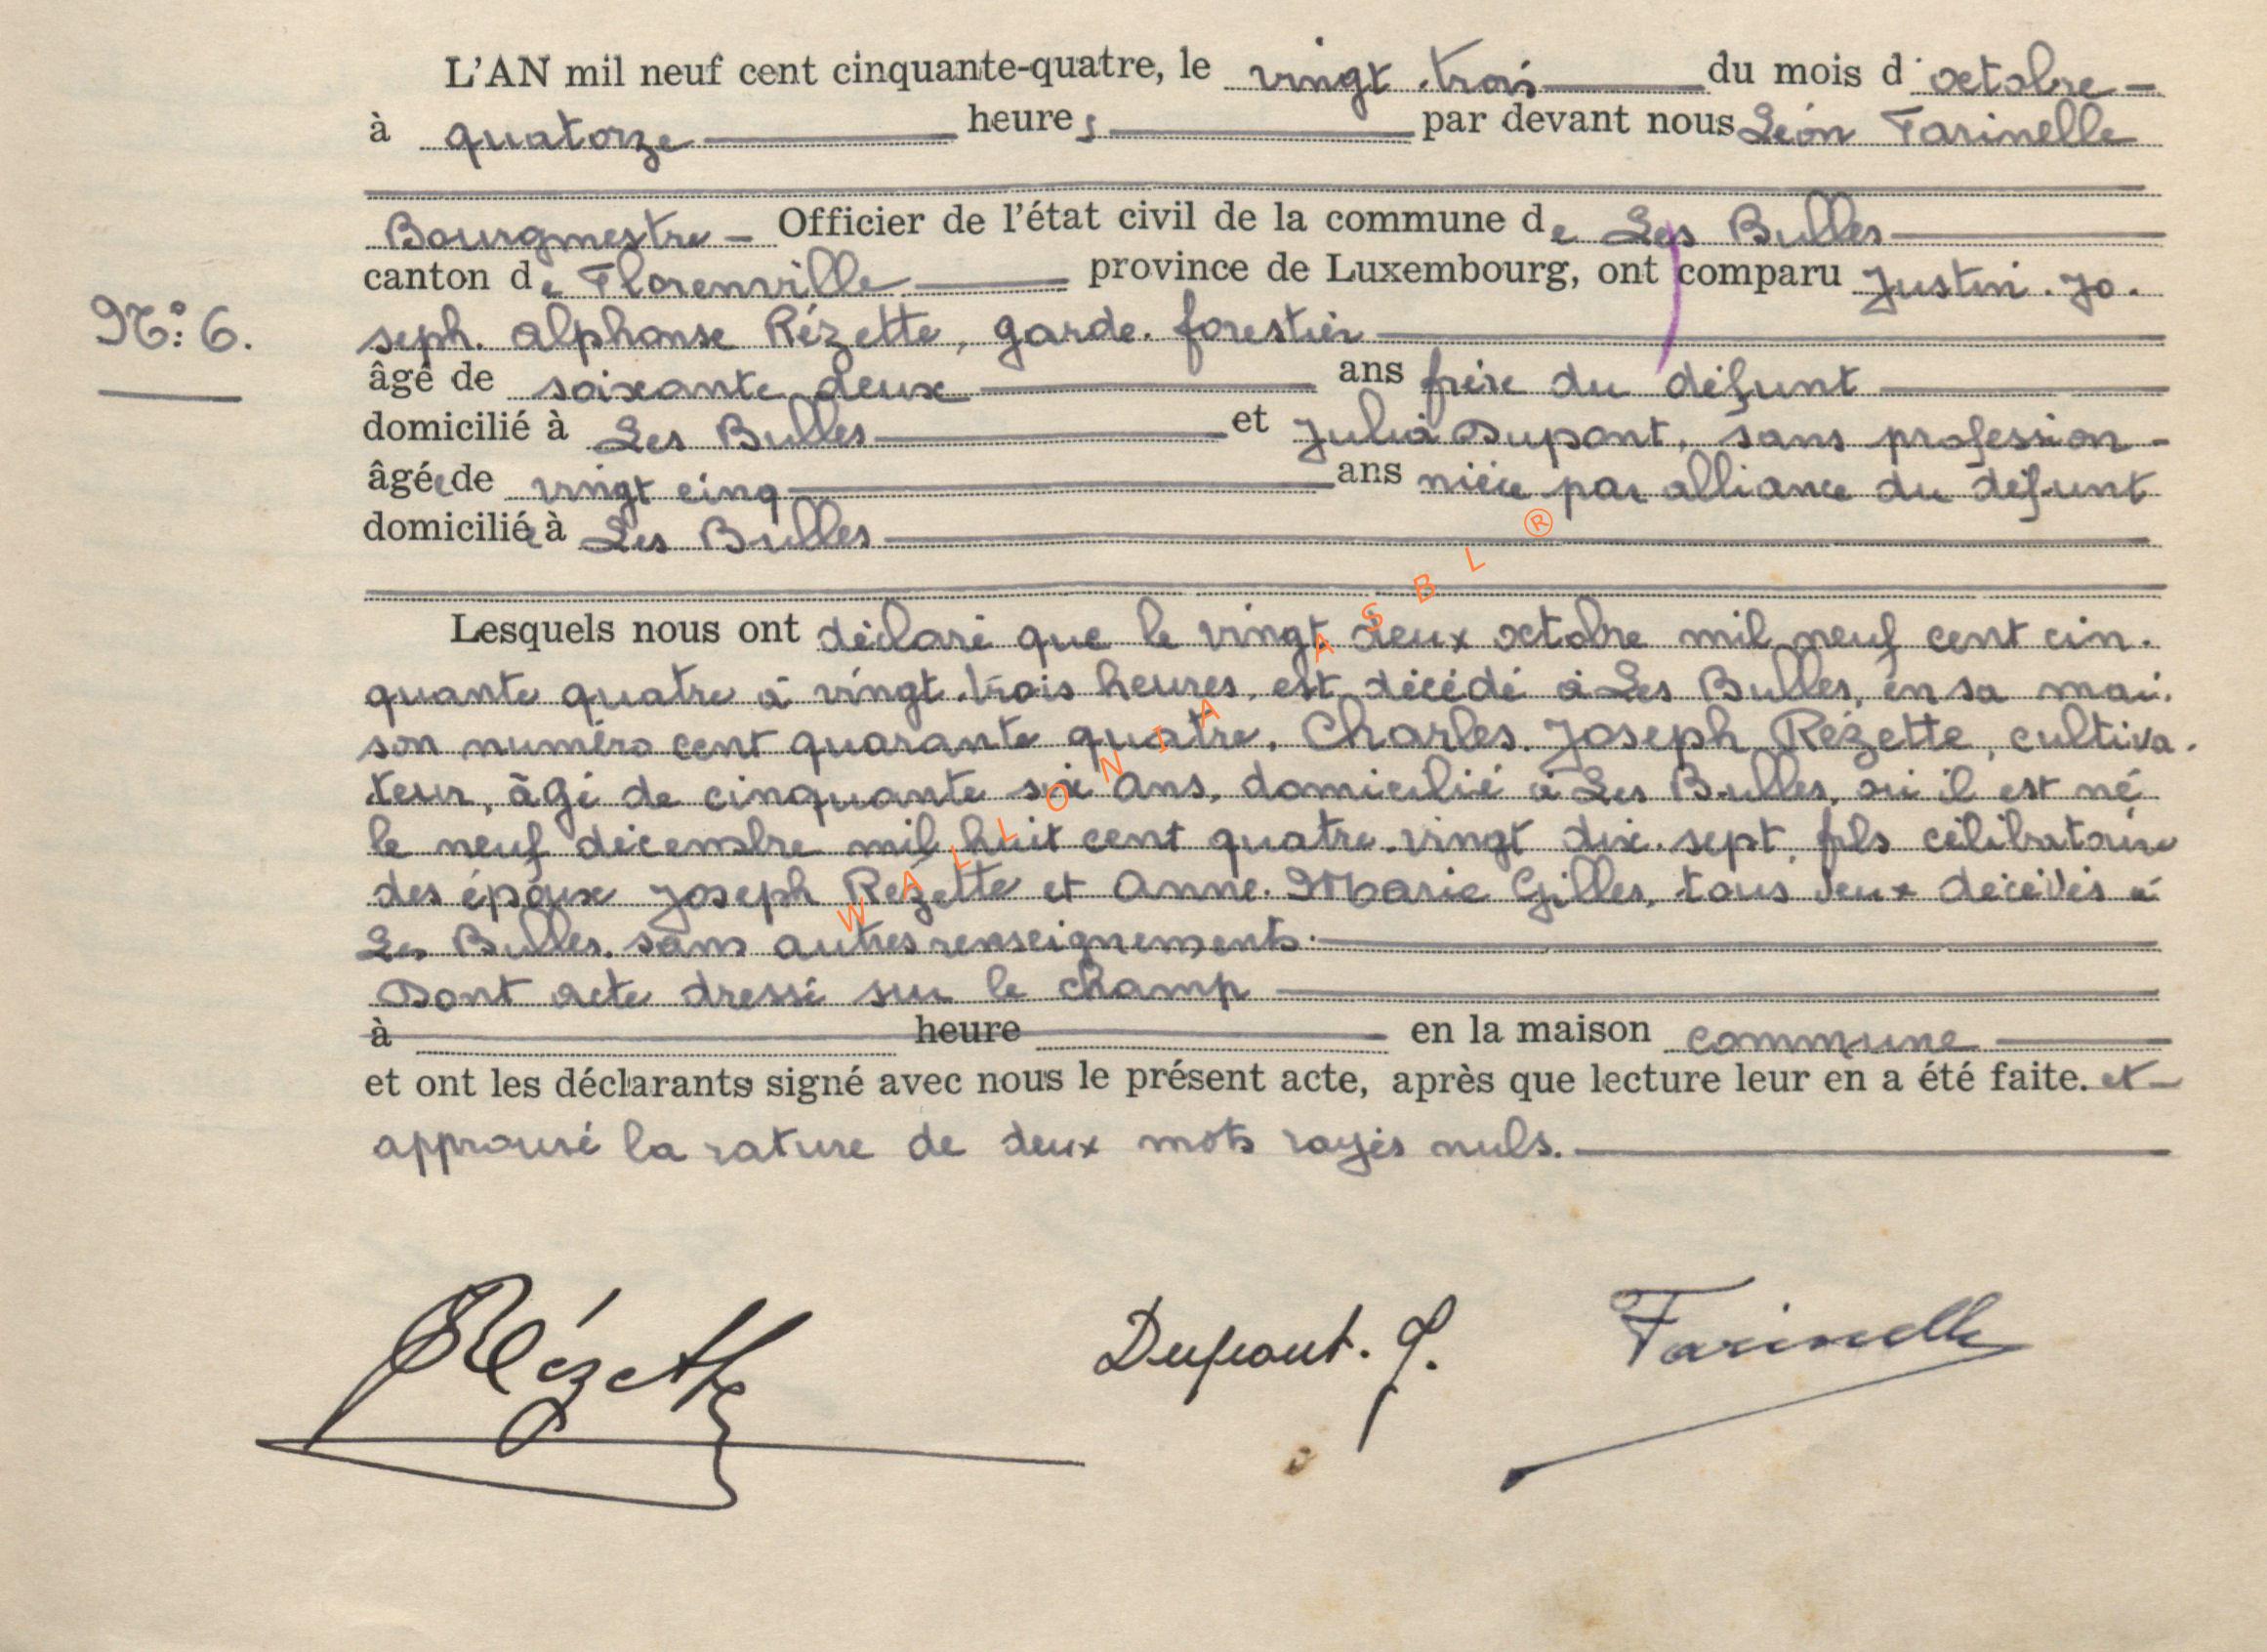 L'AN mil neuf cent cinquante-quatre, le vingt-trois du mois d'octobre
à quatorze heures par devant nous Léon Farinelle
Bourgmestre Officier de l'état civil de la commune de Les Bulles
canton de Florenville province de Luxembourg, ont comparu Justin-Jo-
N° 6.
seph-Alphonse Rézette, garde-forestier
âgé de soixante deux ans frère du défunt
domicilié à Les Bulles et Julia Dupont, sans profession
âgée de vingt cinq ans nièce par alliance du défunt
domiciliée à Les Bulles
Lesquels nous ont déclaré que le vingt deux octobre mil neuf cent cin-
quante quatre à vingt-trois heures, est décédé à Les Bulles, en sa mai-
son numéro cent quarante quatre, Charles-Joseph Rézette, cultiva-
teur, âgé de cinquante six ans, domicilié à Les Bulles, où il est né
le neuf décembre mil huit cent quatre-vingt dix-sept, fils célibataire
des époux Joseph Rézette et Anne-Marie Gilles, tous deux décédés à
Les Bulles. sans autres renseignements.
Dont acte dressé sur le champ
à heure en la maison commune
et ont les déclarants signé avec nous le présent acte, après que lecture leur en a été faite. et
approuvé la rature de deux mots rayés nuls.
Rézette Dupont. J. Farinelle
WALLONIA ASBL ®